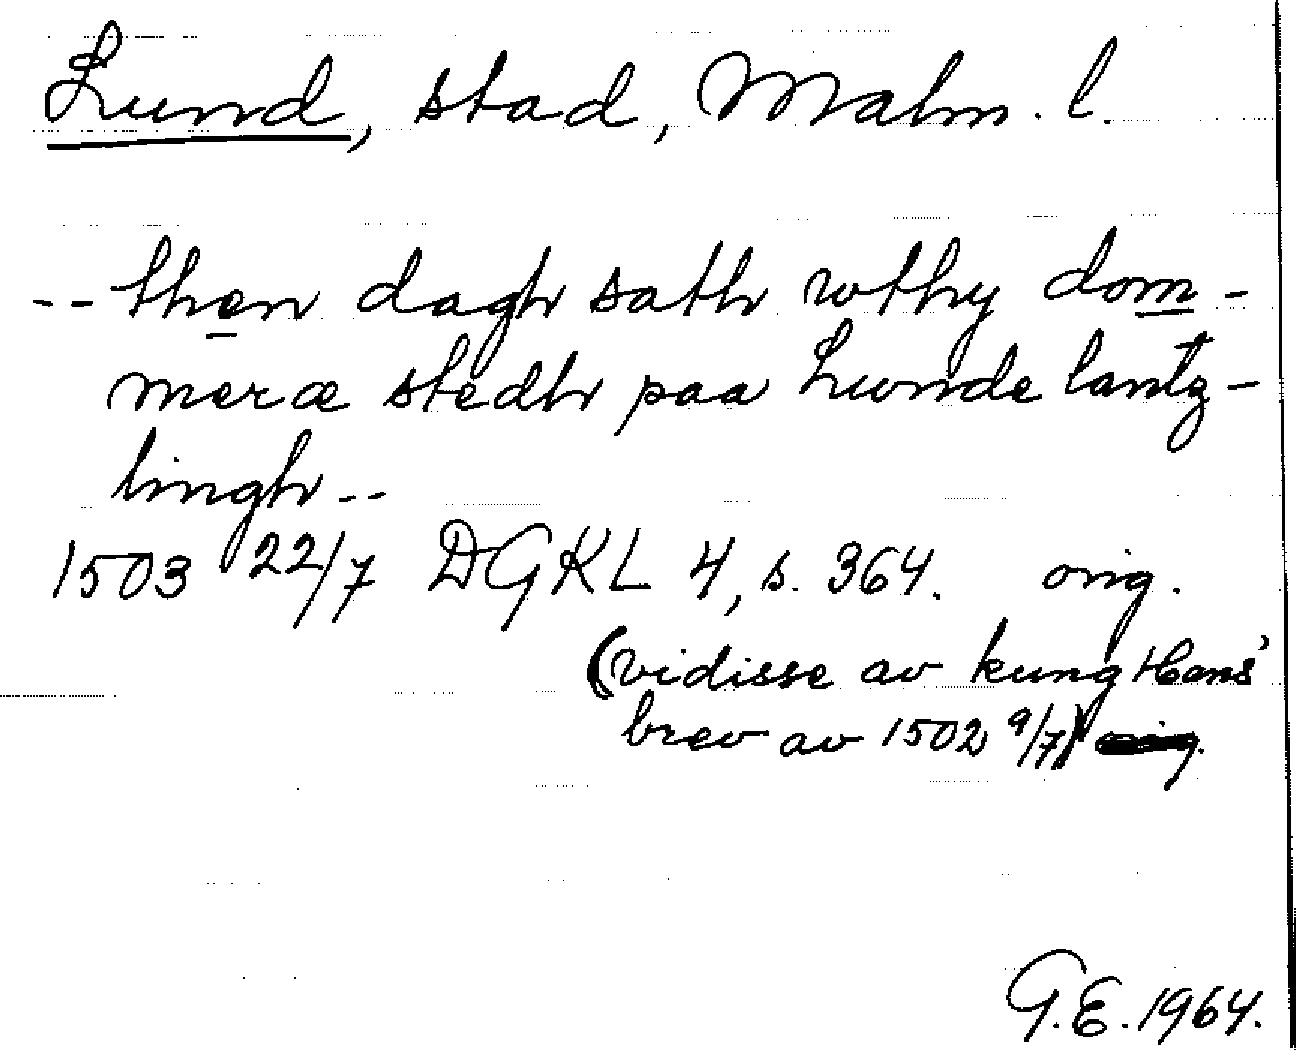 Lund, stad, Malm. l.
-- then dagh sath wthy dom-
meræ stedh paa Lunde lantz-
tingh --
1503 22/7 DGKL 4, s. 364. orig.
(vidisse av kung Hans'
brev av 1502 9/7)
G.E. 1964.